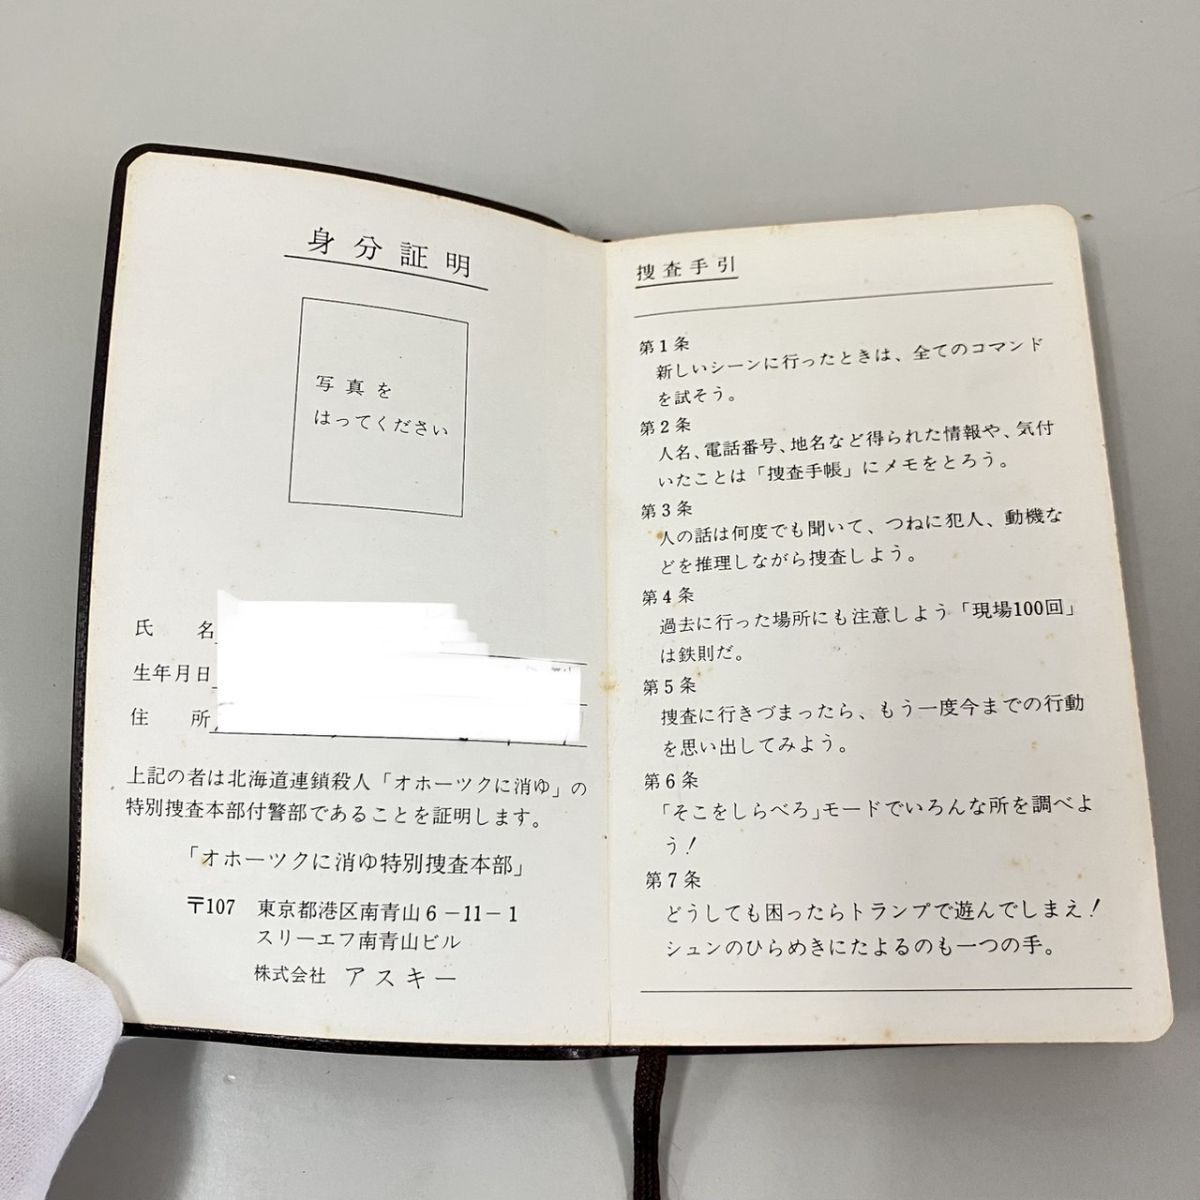 身分証明
写真を
はってください
氏　名
生年月日
住　所
上記の者は北海道連鎖殺人「オホーツクに消ゆ」の
特別捜査本部付警部であることを証明します。
「オホーツクに消ゆ特別捜査本部」
〒107　東京都港区南青山6－11－1
スリーエフ南青山ビル
株式会社　アスキー
捜査手引
第1条
新しいシーンに行ったときは、全てのコマンド
を試そう。
第2条
人名、電話番号、地名など得られた情報や、気付
いたことは「捜査手帳」にメモをとろう。
第3条
人の話は何度でも聞いて、つねに犯人、動機な
どを推理しながら捜査しよう。
第4条
過去に行った場所にも注意しよう「現場100回」
は鉄則だ。
第5条
捜査に行きづまったら、もう一度今までの行動
を思い出してみよう。
第6条
「そこをしらべろ」モードでいろんな所を調べよ
う！
第7条
どうしても困ったらトランプで遊んでしまえ！
シュンのひらめきにたよるのも一つの手。